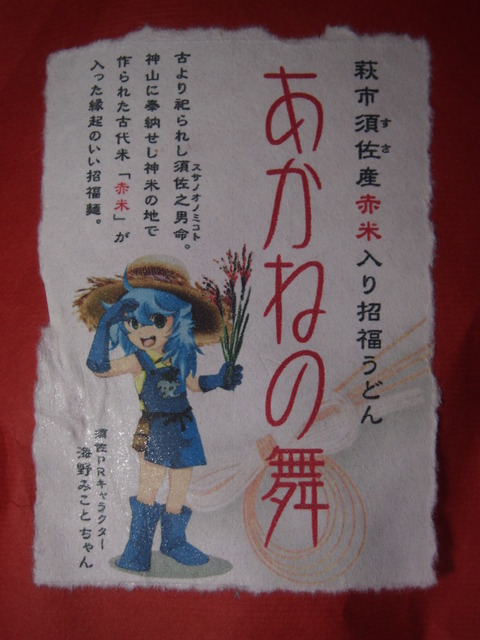 萩市須佐産赤米入り招福うどん
すさ
あかねの舞
古より祀られし須佐之男命。
スサノオノミコト
神山に奉納せし神米の地で
作られた古代米「赤米」が
入った縁起のいい招福麺。
須佐PRキャラクター
海野みことちゃん